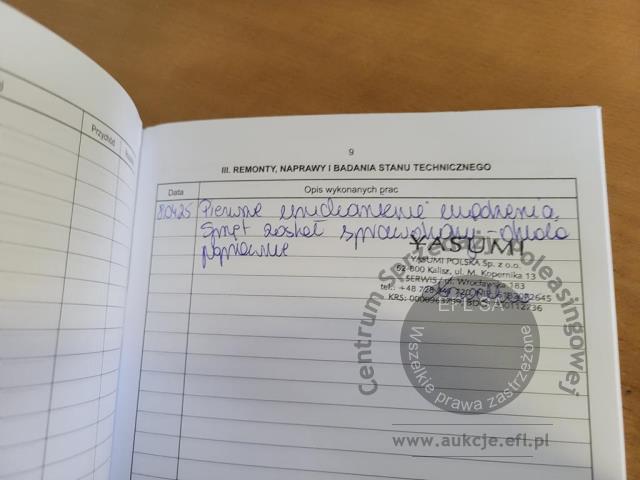 Przychód
9
III. REMONTY, NAPRAWY I BADANIA STANU TECHNICZNEGO
Data
Opis wykonanych prac
Pierwsze uruchomienie urządzenia.
Sprzęt został sprawdzony - działa
poprawnie
YASUMI
YASUMI POLSKA Sp. z o.o.
62-800 Kalisz, ul. M. Kopernika 13
SERWIS / ul. Wrocławska 183
tel.: +48 728
KRS:
Centrum Sprze
oleasingowej
EFL SA
Wszelkie prawa zastrzeżone
www.aukcje.efl.pl